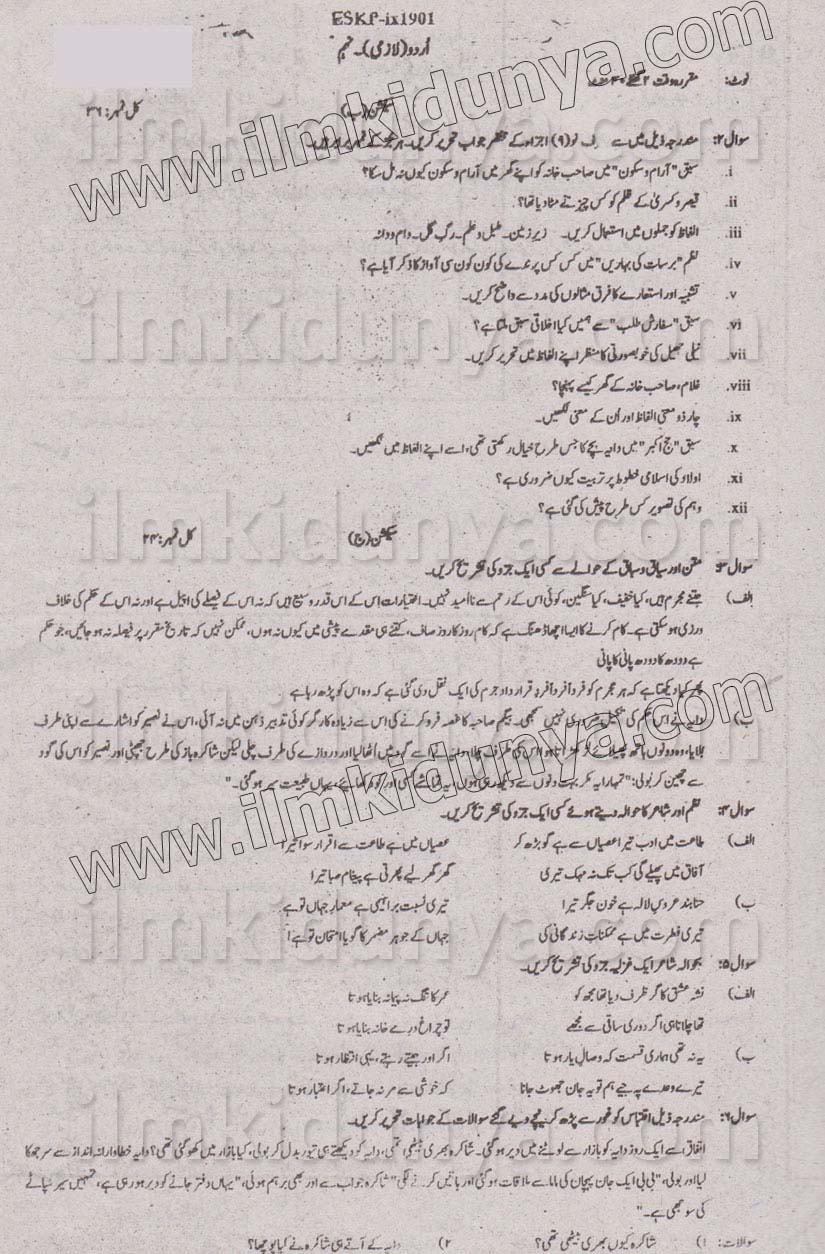 ESKP-ix1901
اُردو (لازمی)۔ نہم
نوٹ: مقررہ وقت ۲ گھنٹے ۴۰ منٹ
سیکشن (ب) کل نمبر: ۳۶
سوال ۲: مندرجہ ذیل میں سے نو (۹) اجزاء کے مختصر جواب تحریر کریں۔ ہر جزو کے نمبر برابر ہیں۔
i. سبق "آرام و سکون" میں صاحب خانہ کو اپنے گھر میں آرام و سکون کیوں نہ مل سکا؟
ii. قیصر و کسریٰ کے ظلم کو کس چیز نے مٹا دیا تھا؟
iii. الفاظ کو جملوں میں استعمال کریں۔ زیرِ زمین۔ طبل و علم۔ رگِ گل۔ دام و دانہ
iv. نظم "برسات کی بہاریں" میں کس کس پرندے کی کون کون سی آواز کا ذکر آیا ہے؟
v. تشبیہ اور استعارے کا فرق مثالوں کی مدد سے واضح کریں۔
vi. سبق "سفارش طلب" سے ہمیں کیا اخلاقی سبق ملتا ہے؟
vii. نیلی جھیل کی خوبصورتی کا منظر اپنے الفاظ میں تحریر کریں۔
viii. غلام، صاحب خانہ کے گھر کیسے پہنچا؟
ix. چار ذو معنی الفاظ اور اُن کے معنی لکھیں۔
x. سبق "حج اکبر" میں دایہ بچے کا جس طرح خیال رکھتی تھی، اسے اپنے الفاظ میں لکھیں۔
xi. اولاد کی اسلامی خطوط پر تربیت کیوں ضروری ہے؟
xii. وہم کی تصویر کس طرح پیش کی گئی ہے؟
سیکشن (ج) کل نمبر: ۲۴
سوال ۳: متن اور سیاق و سباق کے حوالے سے کسی ایک جزو کی تشریح کریں۔
الف) جتنے مجرم ہیں، کیا خفیف، کیا سنگین، کوئی اس کے رحم سے ناامید نہیں۔ اختیارات اس کے اس قدر وسیع ہیں کہ نہ اس کے فیصلے کی اپیل ہے اور نہ اس کے حکم کی خلاف
ورزی ہو سکتی ہے۔ کام کرنے کا ایسا اچھا ڈھنگ ہے کہ کام روز کا روز صاف، کتنے ہی مقدمے پیشی میں کیوں نہ ہوں، ممکن نہیں کہ تاریخ مقرر پر فیصلہ نہ ہو جائیں، جو حکم
ہے دودھ کا دودھ پانی کا پانی
پھر کیا دیکھتا ہے کہ ہر مجرم کو فرداً فرداً فردِ قرار داد جرم کی ایک نقل دی گئی ہے کہ وہ اس کو پڑھ رہا ہے
ب) دایہ نے اس حکم کی تعمیل ضروری نہیں سمجھی۔ بیگم صاحبہ کا غصہ فرو کرنے کی اس سے زیادہ کارگر کوئی تدبیر ذہن میں نہ آئی، اس نے نصیر کو اشارے سے اپنی طرف
بلایا، وہ دونوں ہاتھ پھیلائے لڑکھڑاتا ہوا اس کی طرف چلا، دایہ نے اسے گود میں اُٹھا لیا اور دروازے کی طرف چلی لیکن شاکرہ باز کی طرح جھپٹی اور نصیر کو اس کی گود
سے چھین کر بولی: "تمہارا یہ مکر بہت دنوں سے دیکھ رہی ہوں، یہ تماشے کسی اور کو دکھائیے، یہاں طبیعت سیر ہو گئی۔"
سوال ۴: نظم اور شاعر کا حوالہ دیتے ہوئے کسی ایک جزو کی تشریح کریں۔
الف) طاعت میں ادب تیرا عصیاں سے ہے گو بڑھ کر عصیاں میں ہے طاعت سے اقرار سوا تیرا
آفاق میں پھیلے گی کب تک نہ مہک تیری گھر گھر لیے پھرتی ہے پیغام صبا تیرا
ب) حنا بند عروسِ لالہ ہے خون جگر تیرا تیری نسبت براہیمی ہے معمارِ جہاں تو ہے
تیری فطرت میں ہے ممکناتِ زندگانی کی جہاں کے جوہرِ مضمر کا گویا امتحان تو ہے!
سوال ۵: بحوالہ شاعر ایک غزلیہ جزو کی تشریح کریں۔
الف) نشہ عشق کا گر ظرف دیا تھا مجھ کو عمر کا تنگ نہ پیمانہ بنایا ہوتا
تھا جلانا ہی اگر دوری ساقی سے مجھے تو چراغِ درِ مے خانہ بنایا ہوتا
ب) یہ نہ تھی ہماری قسمت کہ وصالِ یار ہوتا اگر اور جیتے رہتے، یہی انتظار ہوتا
تیرے وعدے پہ جیے ہم تو یہ جان جھوٹ جانا کہ خوشی سے مر نہ جاتے، اگر اعتبار ہوتا
سوال ۶: مندرجہ ذیل اقتباس کو غور سے پڑھ کر نیچے دیے گئے سوالات کے جوابات تحریر کریں۔
اتفاق سے ایک روز دایہ کو بازار سے لوٹنے میں دیر ہو گئی۔ شاکرہ بھری بیٹھی تھی، دایہ کو دیکھتے ہی تیور بدل کر بولی، کیا بازار میں کھو گئی تھی؟ دایہ خطاوارانہ انداز سے سر جھکا
لیا اور بولی، "بی بی ایک جان پہچان کی ماما سے ملاقات ہو گئی اور باتیں کرنے لگی" شاکرہ جواب سے اور بھی برہم ہوئی، "یہاں دفتر جانے کو دیر ہو رہی ہے، تمہیں سیر سپاٹے
کی سوجھی ہے۔"
سوالات: ۱) شاکرہ کیوں بھری بیٹھی تھی؟ ۲) دایہ کے آتے ہی شاکرہ نے کیا پوچھا؟
www.ilmkidunya.com
www.ilmkidunya.com
www.ilmkidunya.com
ilmkidunya.com
ilmkidunya.com
ilmkidunya.com
ilmkidunya.com
ilmkidunya.com